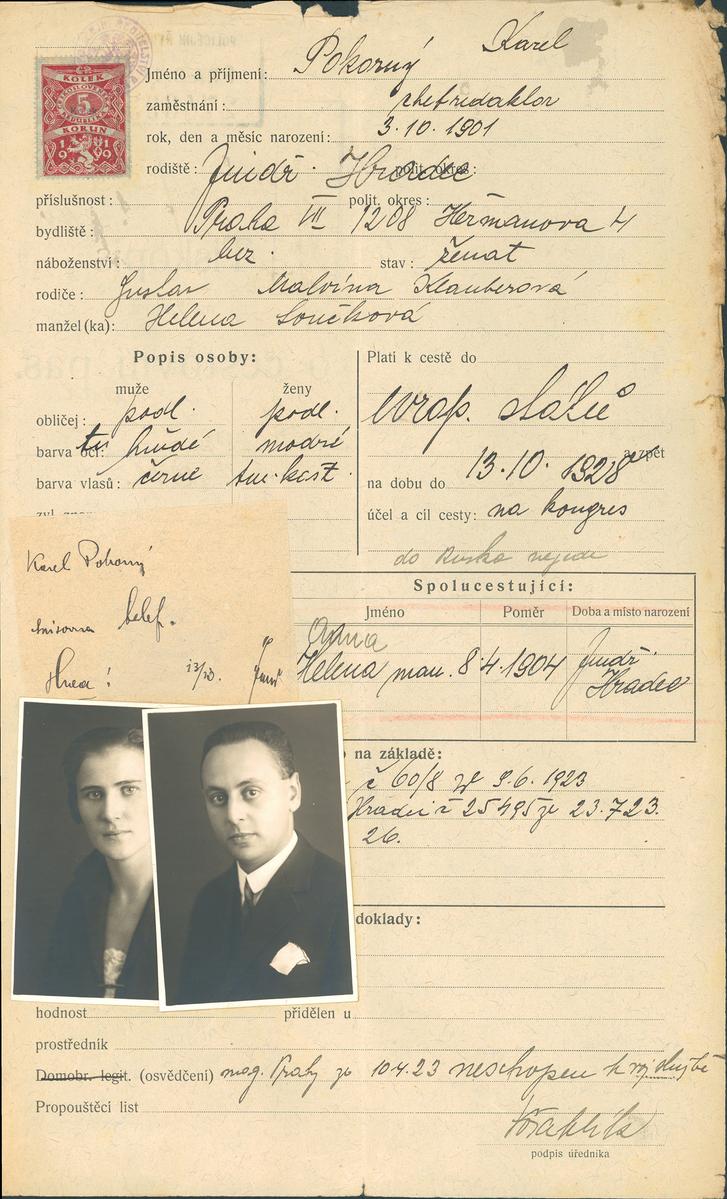 KOLEK
5
KORUN
1919
Jméno a příjmení: Pokorný Karel
zaměstnání: šéfredaktor
rok, den a měsíc narození: 3. 10. 1901
rodiště: Jindř. Hradec polit. okres:
příslušnost: polit. okres:
bydliště: Praha VII 1208 Heřmanova 4
náboženství: bez. stav: ženat
rodiče: Gustav Malvína Klauberová
manžel(ka): Helena Součková
Popis osoby:
muže ženy
obličej: podl. podl.
barva očí: tm hnědé modré
barva vlasů: černé tm. kašt.
Platí k cestě do
evrop. států
a zpět
na dobu do 13. 10. 1928
účel a cíl cesty: na kongres
do Ruska nejede
Karel Pokorný
telef.
13/10.
Spolucestující:
Jméno Poměr Doba a místo narození
Anna
Helena man. 8. 4. 1904 Jindř. Hradec
o na základě:
č 60/8 ze 9. 6. 1923
Hradci č 25495 ze 23. 7 23.
26.
doklady:
hodnost přidělen u
prostředník
Domobr. legit. (osvědčení) mag. Prahy ze 10 4. 23 neschopen k voj službě
Propouštěcí list
podpis úředníka